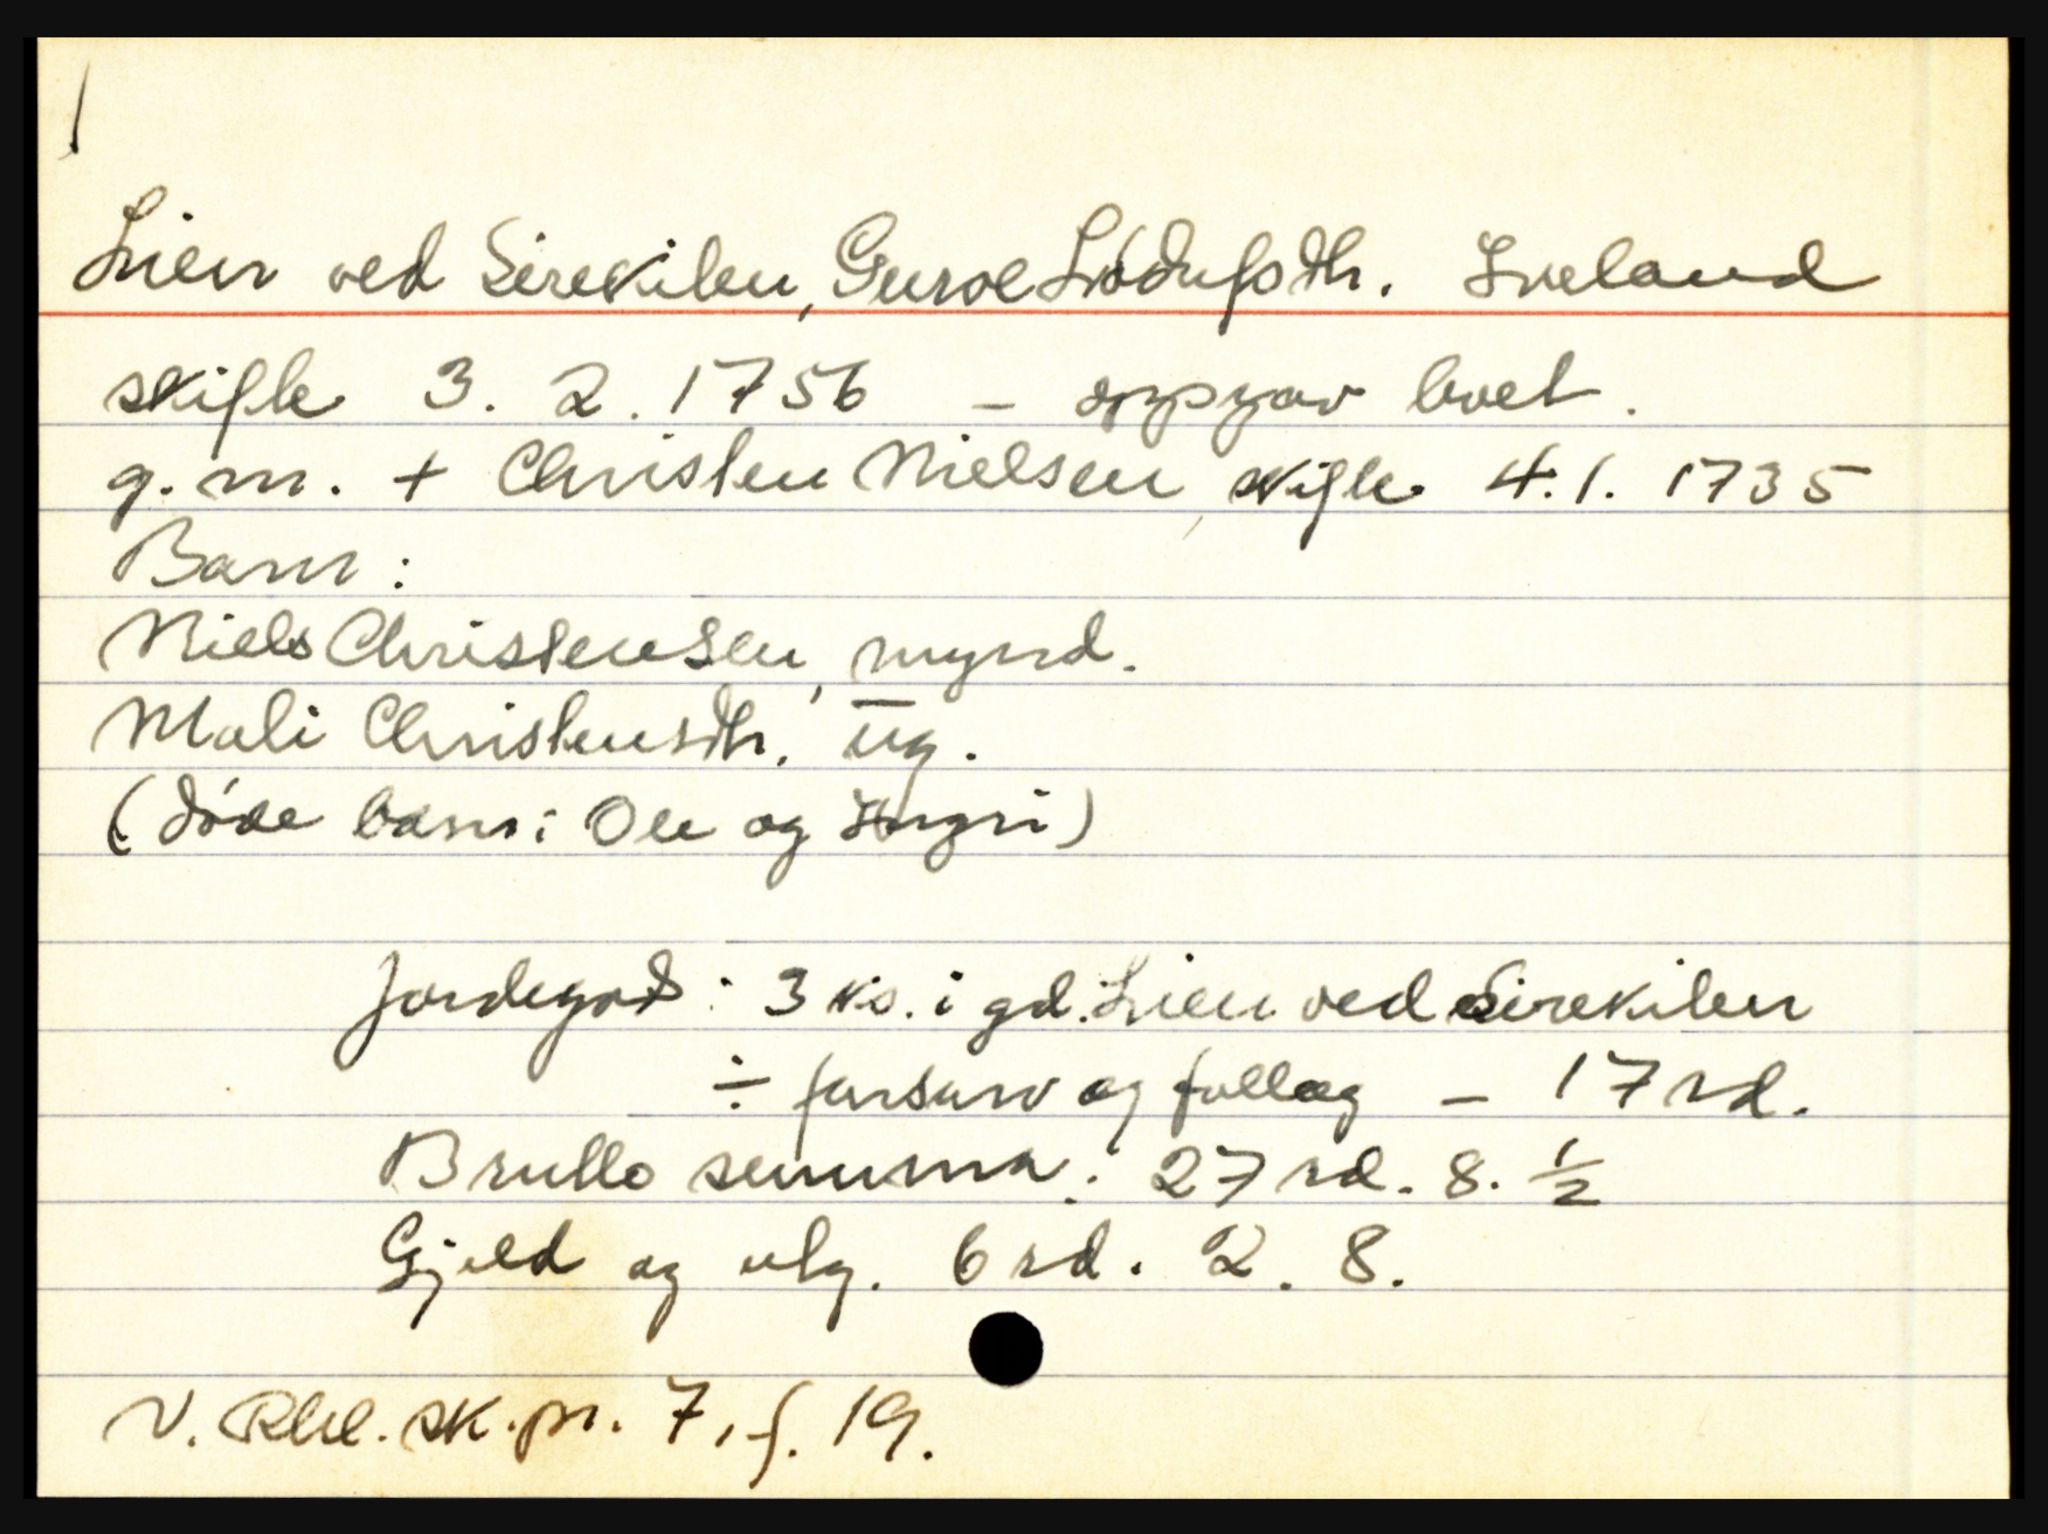 Lien ved Sirekilen, Guroe Lødufsdtr. Iveland
skifte 3. 2. 1756 - oppgav boet.
g. m. + Christen Nielsen, skifte 4. 1. 1735
Barn:
Niels Christensen, mynd.
Mali Christensdtr. ug.
(døde barn: Ole og Ingri)
Jordegods: 3 ks. i gd. Lien ved Sirekilen
÷ farsarv og follog - 17 rd.
Brutto summa: 27 rd. 8. 1/2
Gjeld og utg. 6 rd. 2. 8.
V. Rbl. sk. pr. 7, f. 19.